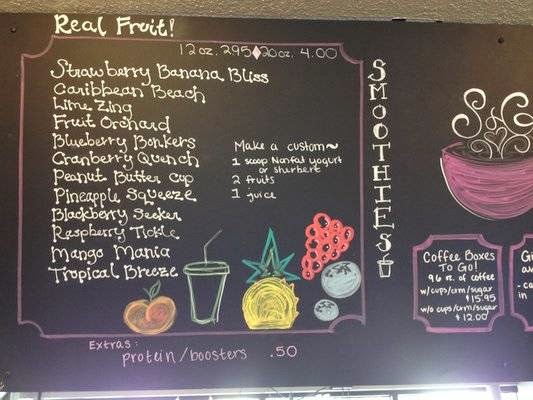 Real Fruit!
12 oz. 295 ♦ 20 oz. 4.00
Strawberry Banana Bliss
Caribbean Beach
Lime Zing
Fruit Orchard
Blueberry Bonkers
Cranberry Quench
Peanut Butter Cup
Pineapple Squeeze
Blackberry Seeker
Raspberry Tickle
Mango Mania
Tropical Breeze
Make a custom~
1 scoop Nonfat yogurt
or sherbert
2 fruits
1 juice
Extras:
protein/boosters .50
SMOOTHIES
Coffee Boxes
To Go!
96 fl. of coffee
w/cups/crm/sugar
$15.95
w/o cups/crm/sugar
$12.00